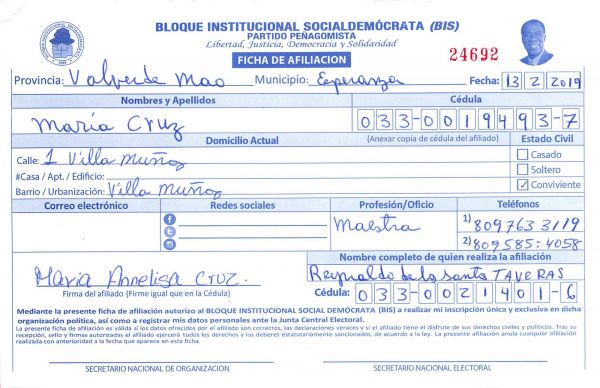 BLOQUE INSTITUCIONAL SOCIALDEMÓCRATA (BIS)
PARTIDO PEÑAGOMISTA
Libertad, Justicia, Democracia y Solidaridad
FICHA DE AFILIACION
24692
Provincia: Valverde Mao Municipio: Esperanza Fecha: 13 2 2019
Nombres y Apellidos Cédula
María Cruz 033-0019493-7
Domicilio Actual (Anexar copia de cédula del afiliado) Estado Civil
Calle: 1 Villa Muñoz Casado
#Casa / Apt. / Edificio: Soltero
Barrio / Urbanización: Villa Muñoz ✓ Conviviente
Correo electrónico Redes sociales Profesión/Oficio Teléfonos
Maestra 1) 809763 3119
2) 809585:4058
Nombre completo de quien realiza la afiliación
Maria Annelisa Cruz. Reynaldo de los Santos TAVERAS
Firma del afiliado (Firme igual que en la Cédula) Cédula: 033-0021401-6
Mediante la presente ficha de afiliación autorizo al BLOQUE INSTITUCIONAL SOCIAL DEMÓCRATA (BIS) a realizar mi inscripción única y exclusiva en dicha
organización política, así como a registrar mis datos personales ante la Junta Central Electoral.
La presente ficha de afiliación es válida si los datos ofrecidos por el afiliado son correctos, las declaraciones veraces y si el afiliado tiene el disfrute de sus derechos civiles y políticos. Tras su
recepción, sello y firmas autorizadas el afiliado ejercerá todos los derechos y los deberes estatutariamente sancionados, de acuerdo a la ley. La presente afiliación anula cualquier afiliación
realizada con anterioridad a la fecha que aparece en esta ficha.
SECRETARIO NACIONAL DE ORGANIZACIÓN SECRETARIO NACIONAL ELECTORAL